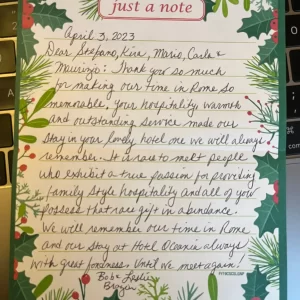 just a note
April 3, 2023
Dear Stefano, Kire, Mario, Carla &
Maurizio: Thank you so much
for making our time in Rome so
memorable. Your hospitality warmth
and outstanding service made our
stay in your lovely hotel one we will always
remember. It is rare to meet people
who exhibit a true passion for providing
family style hospitality and all of you
possess that rare gift in abundance.
We will remember our time in Rome
and our stay at Hotel Oceania always
with great fondness. Until we meet again!
Bob & Leslie